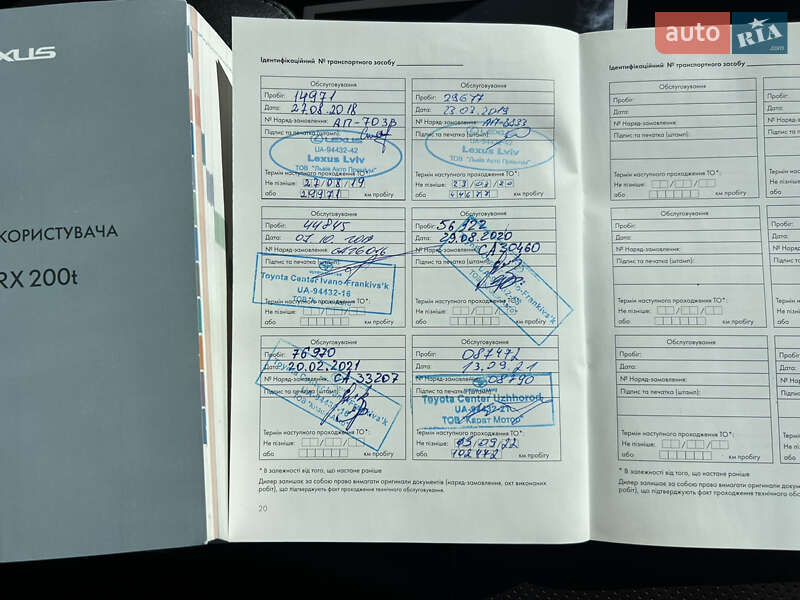 EXUS
КОРИСТУВАЧА
RX 200t
auto RIA .com
Ідентифікаційний № транспортного засобу
Обслуговування
Пробіг: 14971
Дата: 27.08.2018
№ Наряд-замовлення: АП-7033
Підпис та печатка (штамп):
LEXUS
UA-94432-42
Lexus Lviv
ТОВ "Львів Авто Преміум"
Термін наступного проходження ТО*:
Не пізніше: 27/08/19
або 29971 км пробігу
Обслуговування
Пробіг: 29677
Дата: 23.03.2019
№ Наряд-замовлення:
Підпис та печатка (штамп):
UA-94432-42
Lexus Lviv
ТОВ "Львів Авто Преміум"
Термін наступного проходження ТО*:
Не пізніше: 23/03/20
або 44677 км пробігу
Обслуговування
Пробіг: 44845
Дата: 07.10.2019
№ Наряд-замовлення: СА26046
Підпис та печатка (штамп):
Toyota Center Ivano-Frankivs'k
UA-94432-16
Термін наступного проходження ТО*:
Не пізніше:
або км пробігу
Обслуговування
Пробіг: 56122
Дата: 29.08.2020
№ Наряд-замовлення: СА30460
Підпис та печатка (штамп):
Термін наступного проходження ТО*:
Не пізніше:
або км пробігу
Обслуговування
Пробіг: 76970
Дата: 20.02.2021
№ Наряд-замовлення: СА33207
Підпис та печатка (штамп):
Термін наступного проходження ТО*:
Не пізніше:
або км пробігу
Обслуговування
Пробіг: 087472
Дата: 13.09.21
№ Наряд-замовлення: 08790
Підпис та печатка (штамп):
Toyota Center Uzhhorod
UA-94432-21
ТОВ "Карат Мотор"
Термін наступного проходження ТО*:
Не пізніше: 13/09/22
або 102472 км пробігу
* В залежності від того, що настане раніше
Дилер залишає за собою право вимагати оригінали документів (наряд-замовлення, акт виконаних
робіт), що підтверджують факт проходження технічного обслуговування.
20
Ідентифікаційний № транспортного засобу
Обслуговування
Пробіг:
Дата:
№ Наряд-замовлення:
Підпис та печатка (штамп):
Термін наступного проходження ТО*:
Не пізніше:
або км пробігу
Обслуговування
Пробіг:
Дата:
№ Наряд-замовлення:
Підпис та печатка (штамп):
Термін наступного проходження ТО*:
Не пізніше:
або км пробігу
Обслуговування
Пробіг:
Дата:
№ Наряд-замовлення:
Підпис та печатка (штамп):
Термін наступного проходження ТО*:
Не пізніше:
або км пробігу
* В залежності від того, що настане раніше
Дилер залишає за собою право вимагати оригінали
робіт), що підтверджують факт проходження технічного